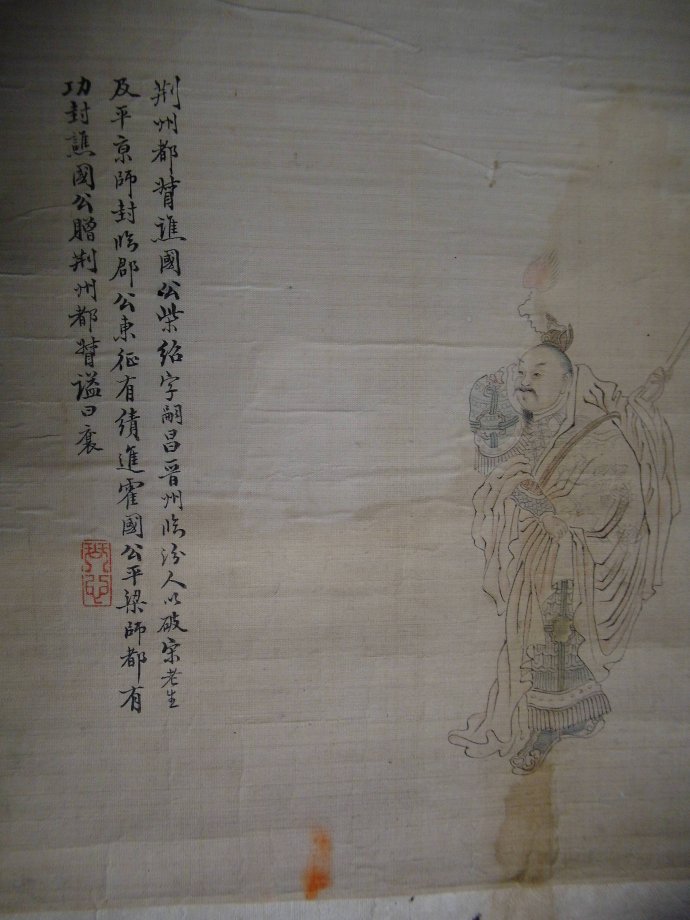 荆州都督譙國公柴绍字嗣昌晋州临汾人以破宋老生
及平京師封临郡公東征有绩進霍國公平梁師都有
功封譙國公贈荆州都督謚曰襄